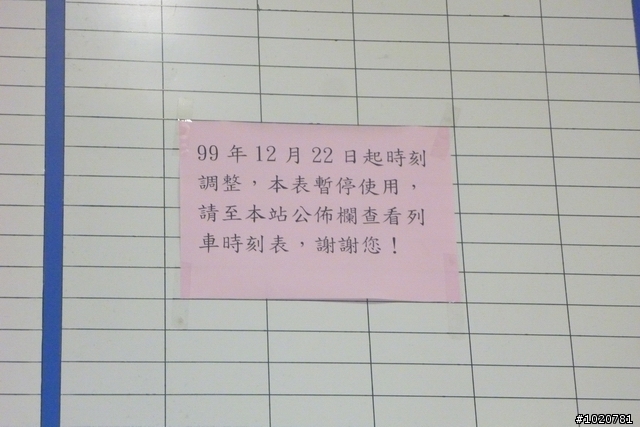 99 年 12 月 22 日起時刻
調整，本表暫停使用，
請至本站公佈欄查看列
車時刻表，謝謝您！
#1020781